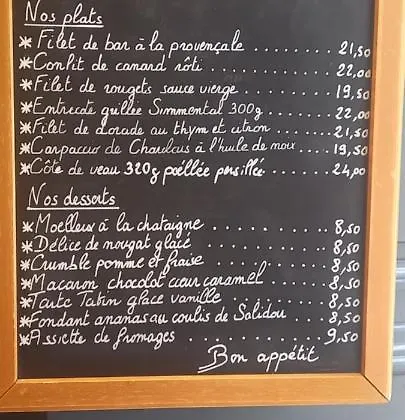 Nos plats
* Filet de bar à la provençale ........ 21,50
* Confit de canard rôti ............. 22,00
* Filet de rougets sauce vierge ......... 19,50
* Entrecôte grillée Simmental 300g ....... 22,00
* Filet de dorade au thym et citron ...... 21,50
* Carpaccio de Charolais à l'huile de noix .... 19,50
* Côte de veau 320g poêllée persillée ...... 24,00
Nos desserts
* Moelleux à la chataigne ........... 8,50
* Délice de nougat glacé ............ 8,50
* Crumble pomme et fraise .......... 8,50
* Macaron chocolat cœur caramel ....... 8,50
* Tarte Tatin glace vanille ......... 8,50
* Fondant ananas au coulis de Salidou ... 8,50
* Assiette de fromages ............ 9,50
Bon appétit